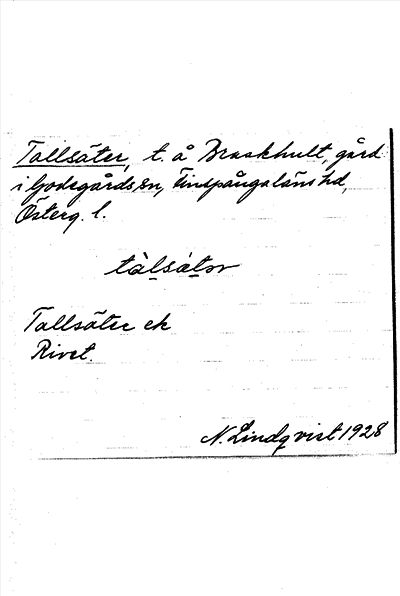 Tallsäter, t. å Braskhult, gård
i Godegårds sn, Finspånga läns hd,
Österg. l.
tàlsátər
Tallsäter ek
Rivet.
N. Lindqvist 1928